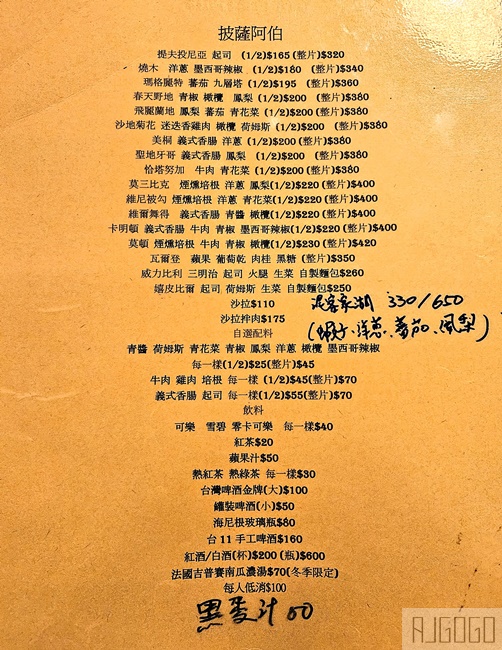 披薩阿伯
提夫投尼亞 起司 (1/2)$165(整片)$320
燒木 洋蔥 墨西哥辣椒 (1/2)$180 (整片)$340
瑪格麗特 蕃茄 九層塔(1/2)$195 (整片)$360
春天野地 青椒 橄欖 鳳梨(1/2)$200 (整片)$380
飛麗蘭地 鳳梨 蕃茄 青花菜(1/2)$200 (整片)$380
沙地菊花 迷迭香雞肉 橄欖 荷姆斯 (1/2)$200 (整片)$380
美桐 義式香腸 洋蔥 (1/2)$200(整片)$380
聖地牙哥 義式香腸 鳳梨 (1/2)$200 (整片)$380
恰塔努加 牛肉 青花菜 (1/2)$200(整片)$380
莫三比克 煙燻培根 洋蔥 鳳梨(1/2)$220(整片)$400
維尼被勾 煙燻培根 洋蔥 青花菜(1/2)$220(整片)$400
維爾舞得 義式香腸 青醬 橄欖(1/2)$220(整片)$400
卡明頓 義式香腸 牛肉 青椒 墨西哥辣椒(1/2)$220(整片)$400
莫頓 煙燻培根 牛肉 青椒 橄欖(1/2)$230(整片)$420
瓦爾登 蘋果 葡萄乾 肉桂 黑糖 (整片)$350
威力比利 三明治 起司 火腿 生菜 自製麵包$260
嬉皮比爾 起司 荷姆斯 生菜 自製麵包$250
沙拉$110
330/650
沙拉拌肉$175
洋蔥、蕃茄、鳳梨)
自選配料
青醬 荷姆斯 青花菜 青椒 鳳梨 洋蔥 橄欖 墨西哥辣椒
每一樣(1/2)$25(整片)$45
牛肉 雞肉 培根 每一樣 (1/2)$45(整片)$70
義式香腸 起司 每一樣(1/2)$55(整片)$70
飲料
可樂 雪碧 零卡可樂 每一樣$40
紅茶$20
蘋果汁$50
熱紅茶 熱綠茶 每一樣$30
台灣啤酒金牌(大)$100
罐裝啤酒(小)$50
海尼根玻璃瓶$80
台11手工啤酒$160
紅酒/白酒(杯)$200(瓶)$600
法國吉普賽南瓜濃湯$70(冬季限定)
每人低消$100
黑麥汁 60
AJGOGO